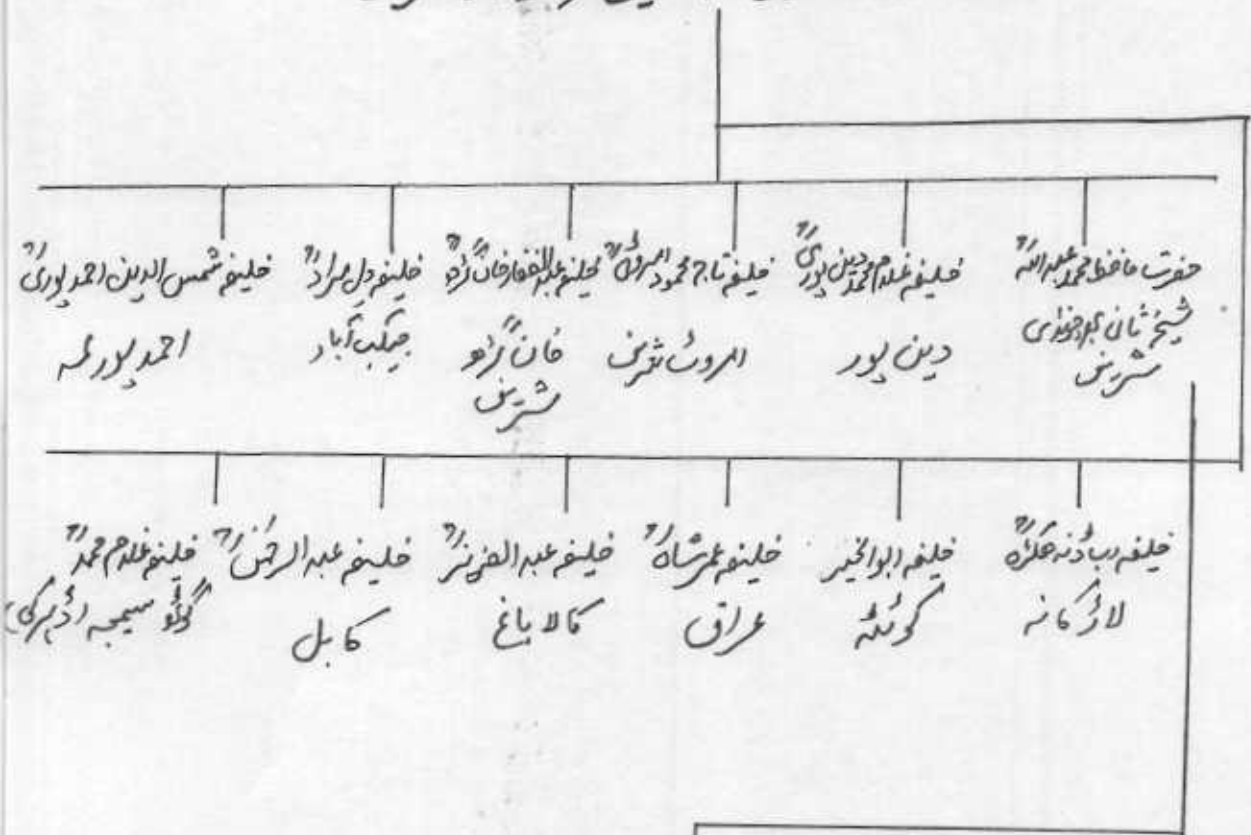 حضرت حافظ محمد عبداللہؒ
شیخ ثانی بھرچونڈی
شریف
خلیفہ غلام محمد دین پوریؒ
دین پور
خلیفہ تاج محمود امروٹیؒ
امروٹ شریف
خلیفہ عبدالغفار خان گڑھؒ
خان گڑھ
شریف
خلیفہ دل مرادؒ
جیکب آباد
خلیفہ شمس الدین احمد پوریؒ
احمد پور لمہ
خلیفہ
لاڑکانہ
خلیفہ ابوالخیر
کوئٹہ
خلیفہ عمر شاہؒ
عراق
خلیفہ عبدالعزیزؒ
کالاباغ
خلیفہ عبدالرحمٰنؒ
کابل
خلیفہ غلام محمدؒ